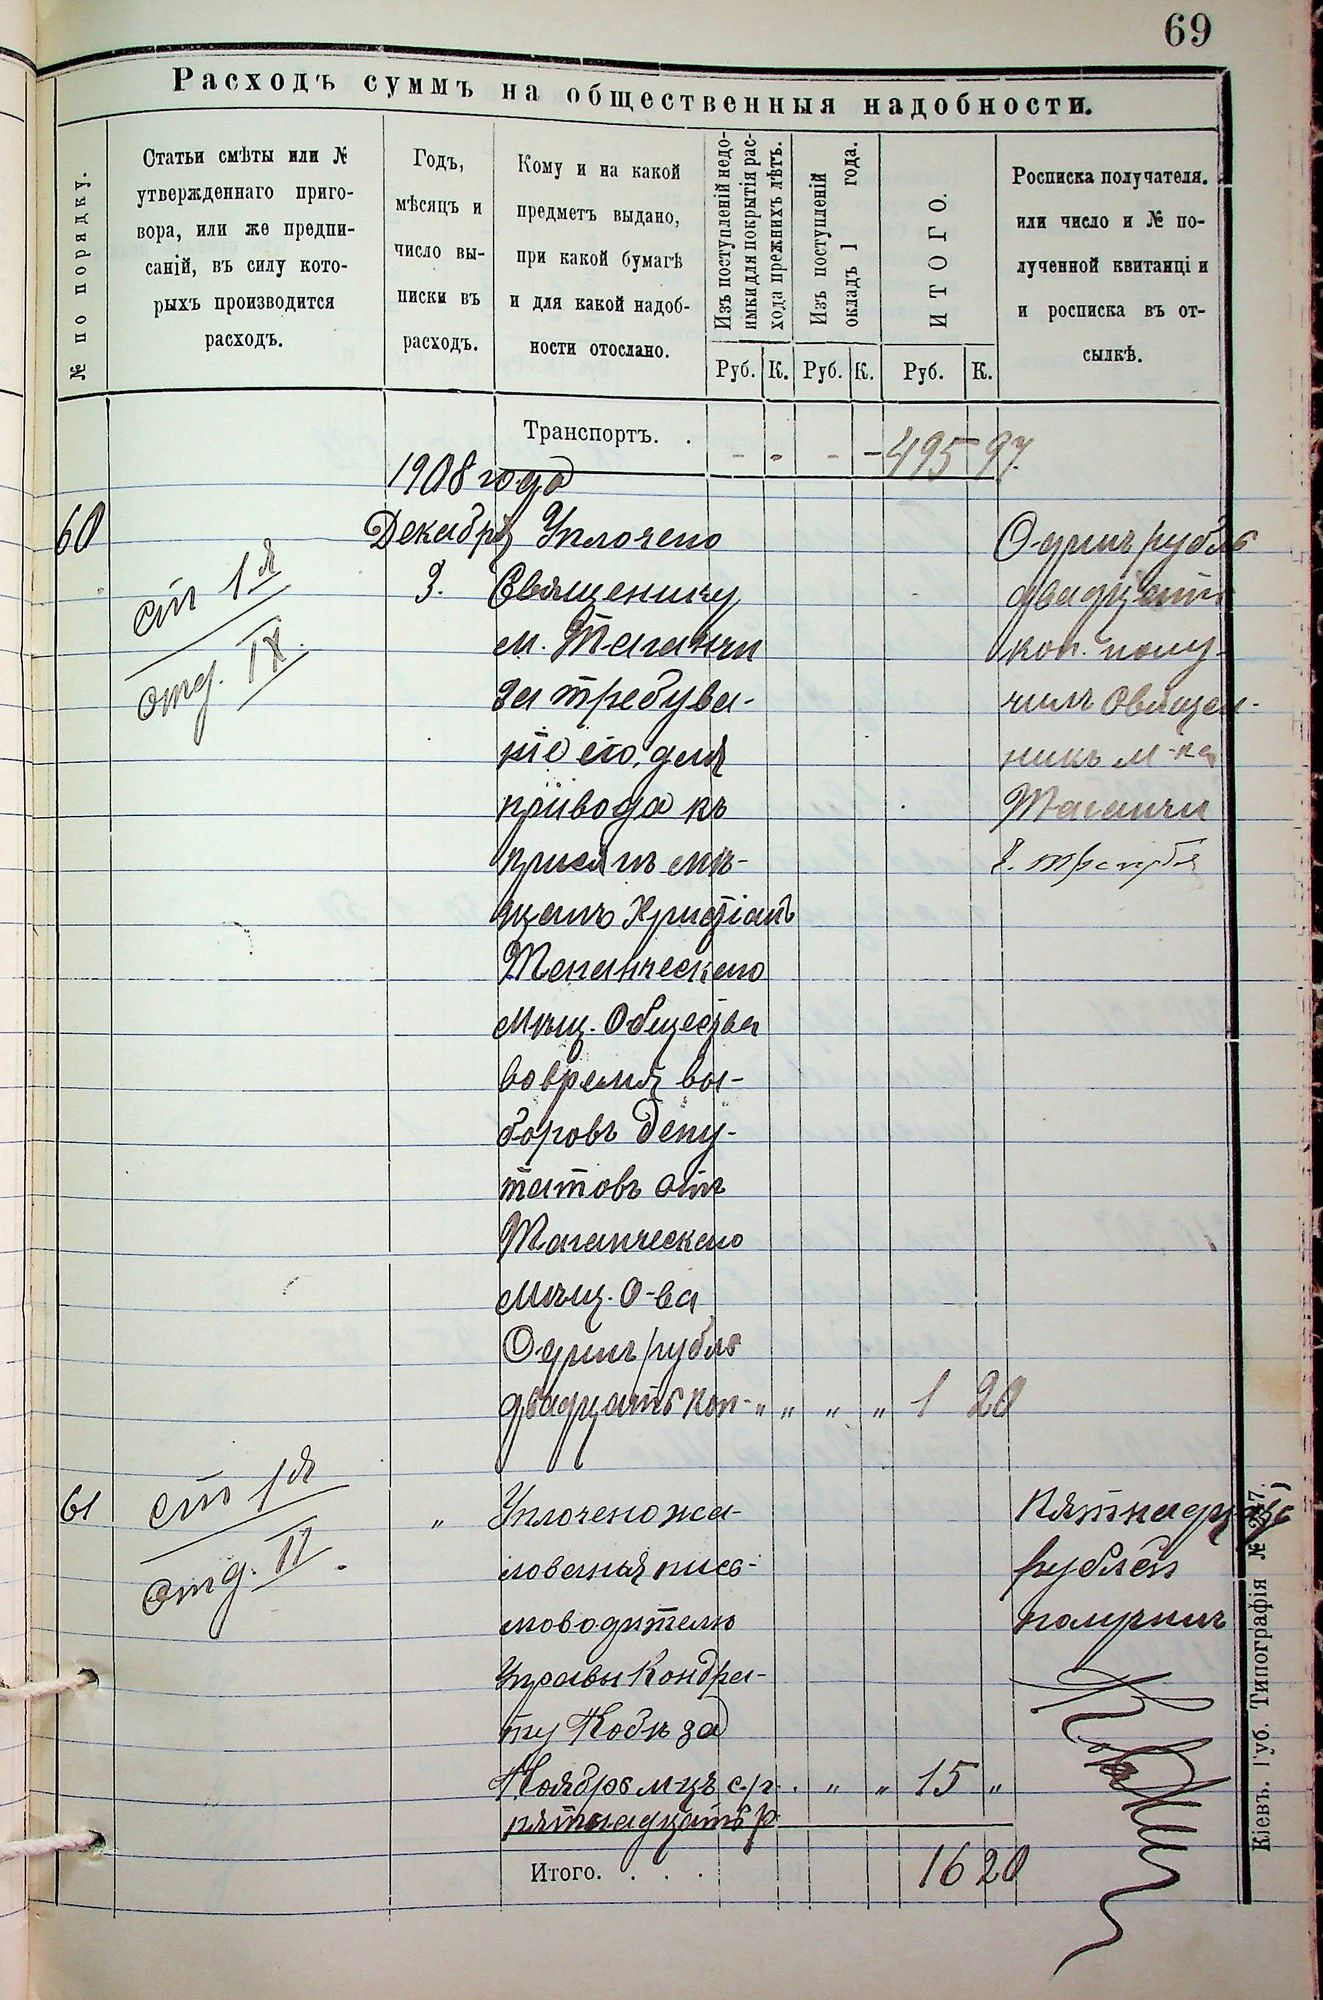 69
Расходъ суммъ на общественныя надобности.
№ по порядку.
Статьи смѣты или №
утвержденнаго приго-
вора, или же предпи-
саній, въ силу кото-
рыхъ производится
расходъ.
Годъ,
мѣсяцъ и
число вы-
писки въ
расходъ.
Кому и на какой
предметъ выдано,
при какой бумагѣ
и для какой надоб-
ности отослано.
Изъ поступленій недо-
имки для покрытія рас-
хода прежнихъ лѣтъ.
Изъ поступленій
окладъ 1 года.
ИТОГО.
Росписка получателя.
или число и № по-
лученной квитанці и
и росписка въ от-
сылкѣ.
Руб. К. Руб. К. Руб. К.
Транспортъ. . - - - - 495 97.
1908 года
60
ст 1я
отд. IX.
Декабря
3.
Уплочено
Священику
м. Таганчи
за требува-
ніе его, для
привода къ
присягъ мѣ-
щанъ Христіанъ
Таганческаго
мѣщ. Общества
во время вы-
боровъ депу-
татовъ отъ
Таганческаго
мѣщ. О-ва
Одинъ рубль
двадцать коп- " " " " 1 20
Одинъ рубль
двадцать
коп. полу-
чилъ Священ-
никъ м-ка
Таганчи
61
ст 1я
отд. II.
"
Уплочено жа-
лованья пись-
моводителю
Управы Кондра-
ту Кобѣ за
Ноябрь м-цъ с.г. . " " 15 "
пятнадцать р.
Пятнадцать
рублей
получилъ
Итого. . . . 16 20
Кіевъ. Губ. Типографія № 247.